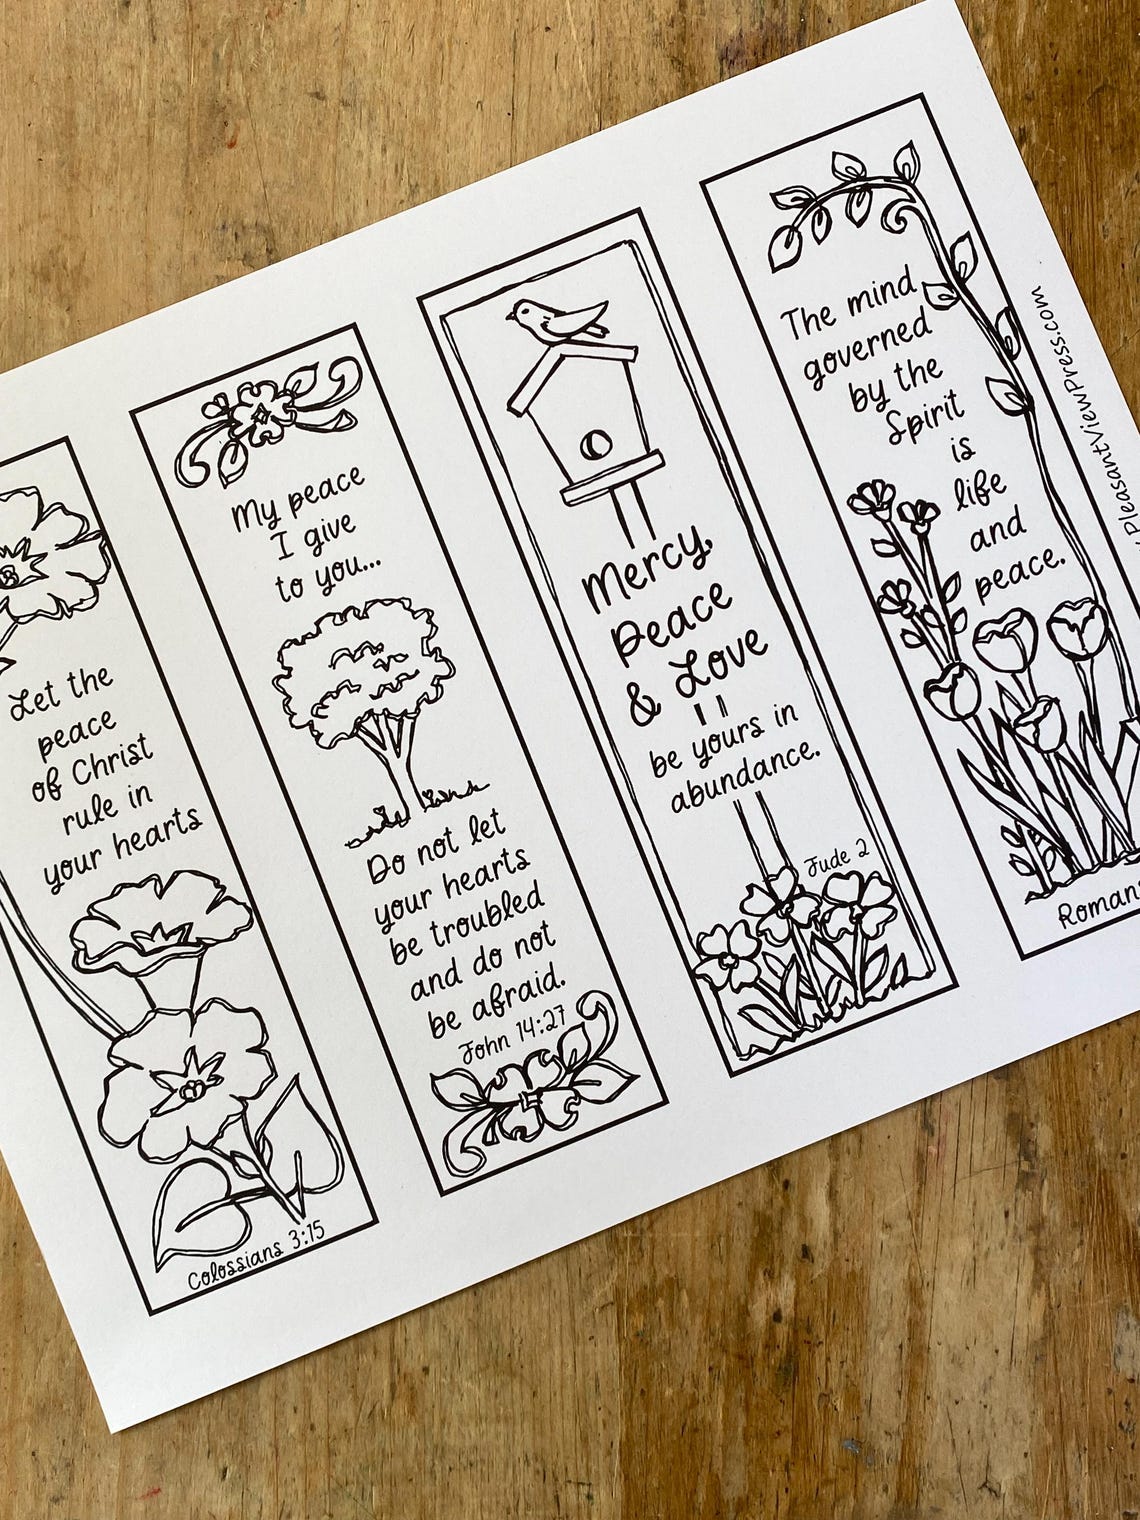 Let the
peace
of Christ
rule in
your hearts
Colossians 3:15
My peace
I give
to you...
Do not let
your hearts
be troubled
and do not
be afraid.
John 14:27
Mercy,
Peace
& Love
be yours in
abundance.
Jude 2
The mind
governed
by the
Spirit
is
life
and
peace.
Romans
PleasantViewPress.com